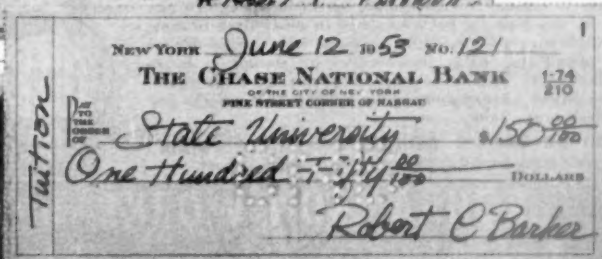 1
NEW YORK June 12 1953 NO. 121
THE CHASE NATIONAL BANK 1-74/210
OF THE CITY OF NEW YORK
PINE STREET CORNER OF NASSAU
PAY TO THE ORDER OF State University $150 00/100
One Hundred Fifty 00/100 DOLLARS
Robert C Barker
Tuition